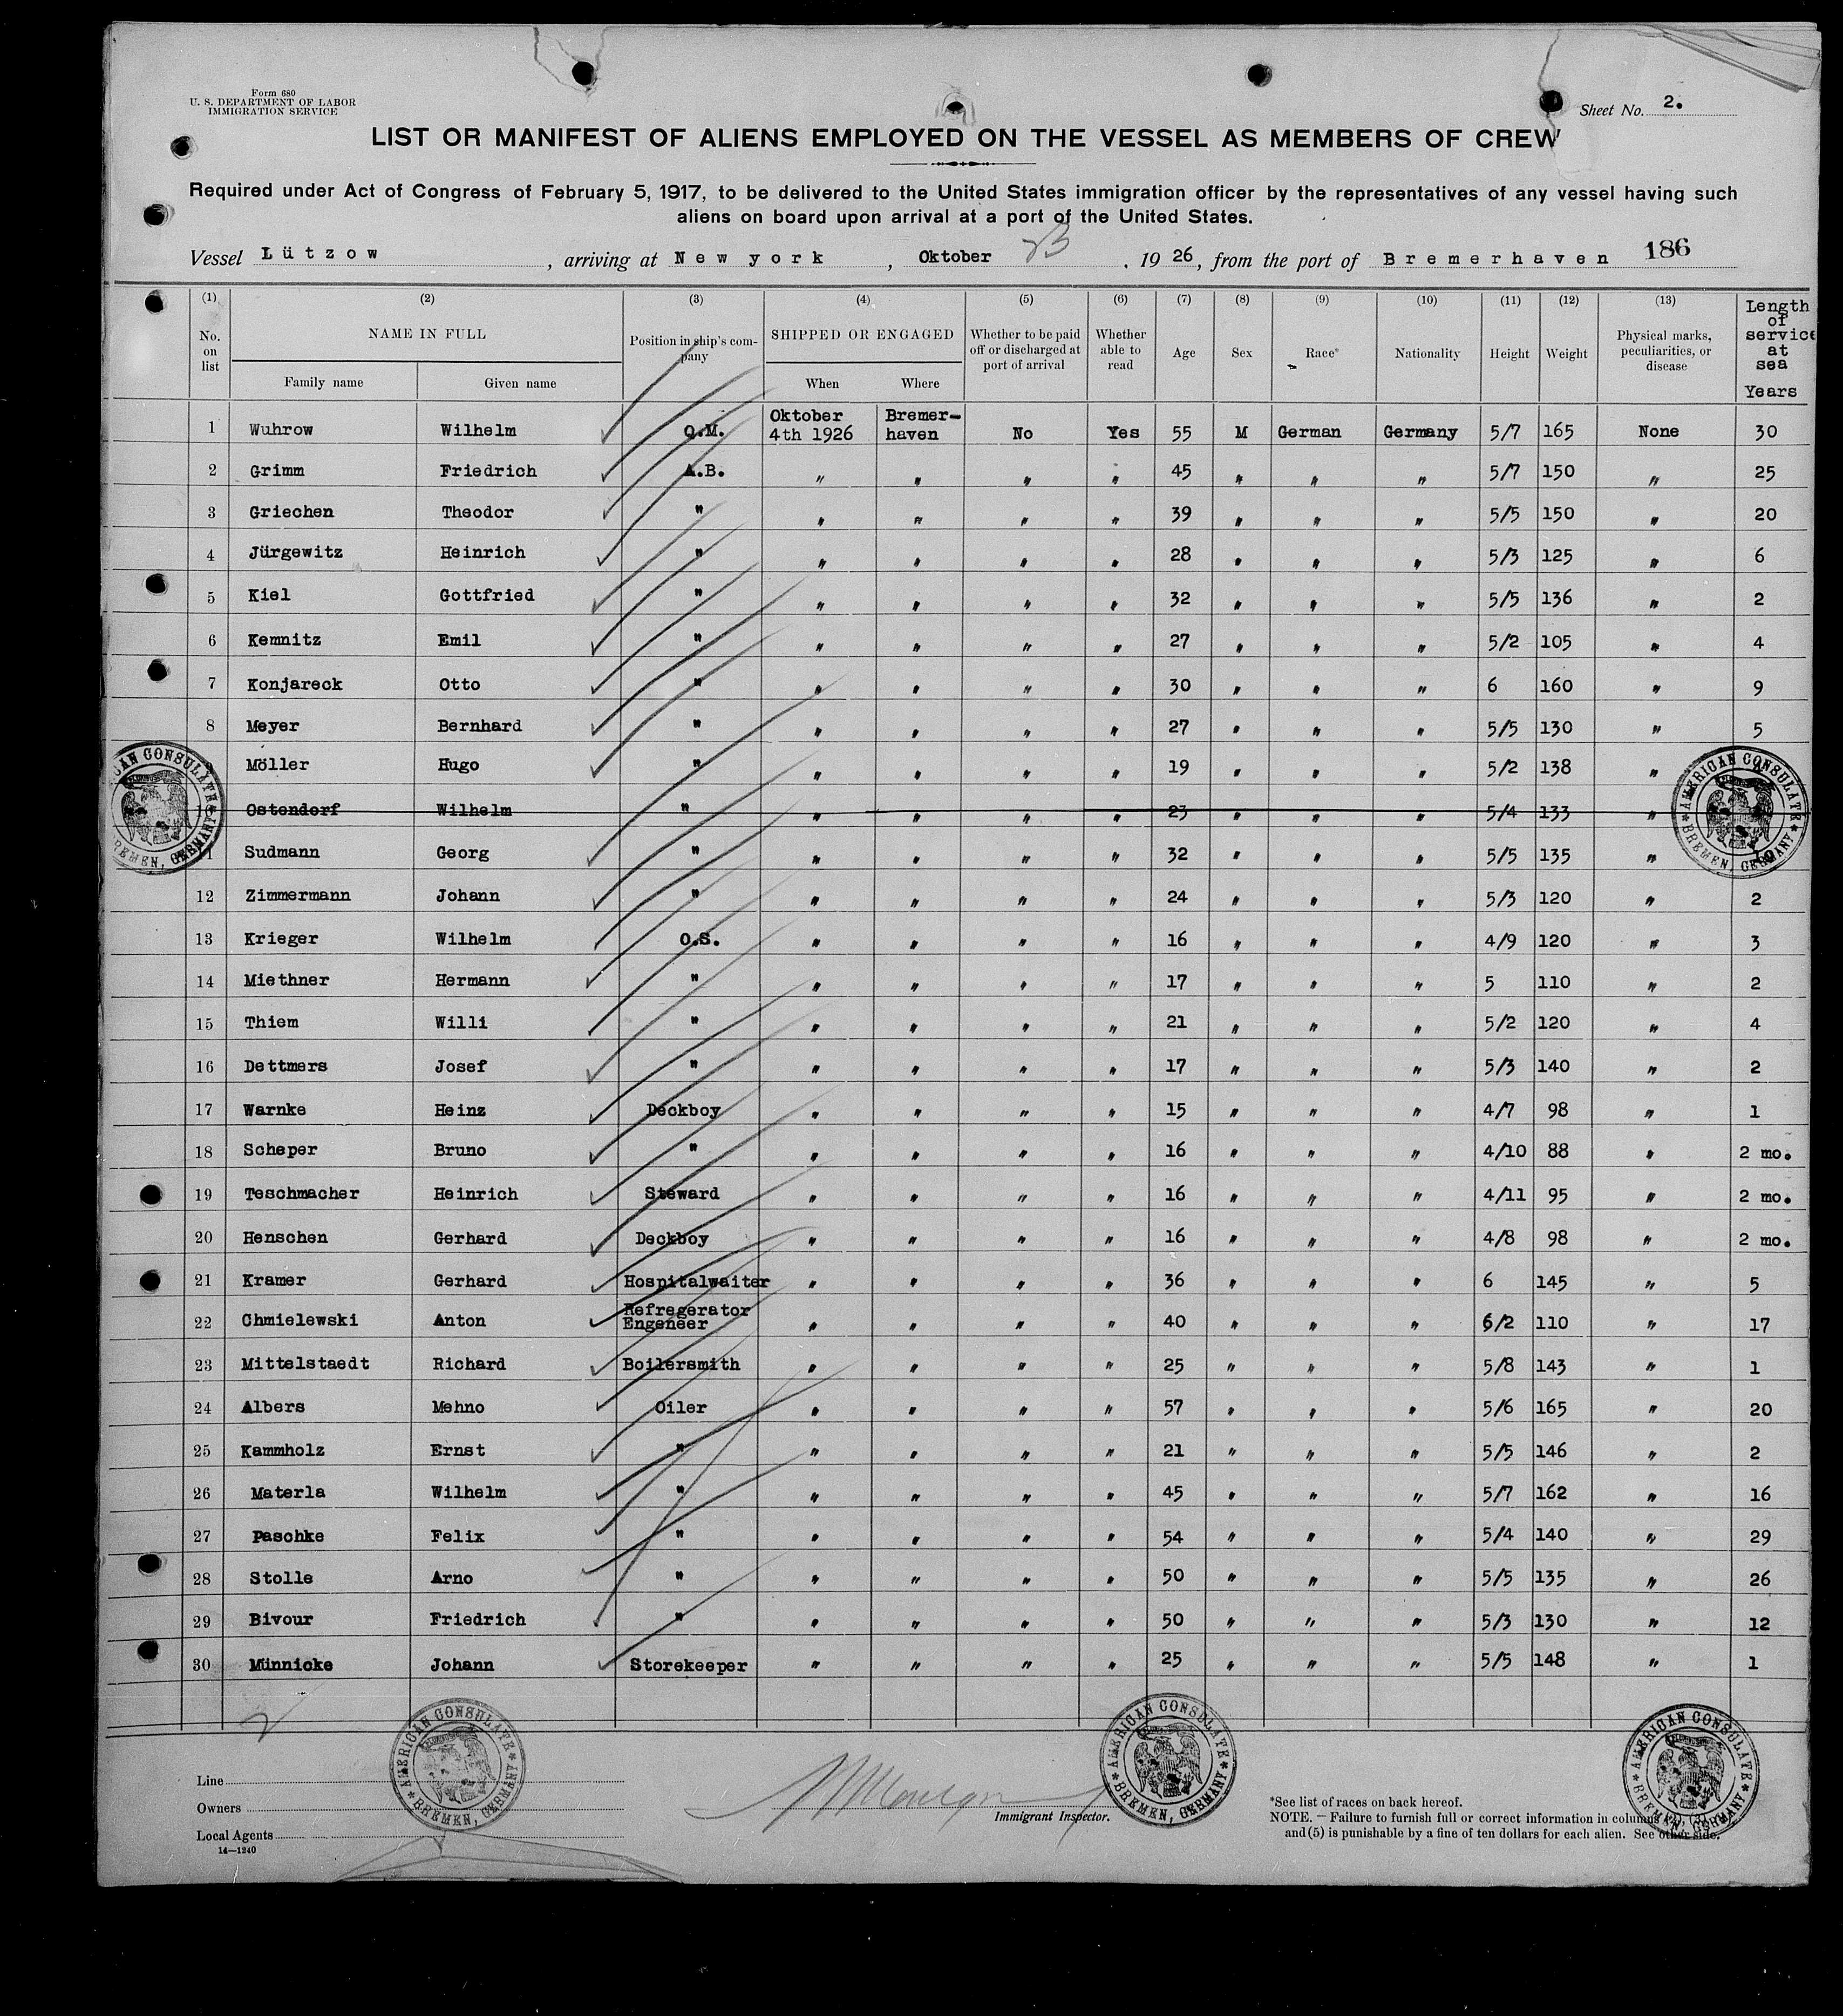 Form 680
U. S. DEPARTMENT OF LABOR
IMMIGRATION SERVICE
Sheet No. 2.
LIST OR MANIFEST OF ALIENS EMPLOYED ON THE VESSEL AS MEMBERS OF CREW
Required under Act of Congress of February 5, 1917, to be delivered to the United States immigration officer by the representatives of any vessel having such
aliens on board upon arrival at a port of the United States.
Vessel Lützow, arriving at New york, Oktober, 1926, from the port of Bremerhaven 186
(1) (2) (3) (4) (5) (6) (7) (8) (9) (10) (11) (12) (13)
No. on list NAME IN FULL Family name Given name Position in ship's company SHIPPED OR ENGAGED When Where Whether to be paid off or discharged at port of arrival Whether able to read Age Sex Race* Nationality Height Weight Physical marks, peculiarities, or disease Length of service at sea Years
1 Wuhrow Wilhelm Q.M. Oktober 4th 1926 Bremer-haven No Yes 55 M German Germany 5/7 165 None 30
2 Grimm Friedrich A.B. " " " " 45 " " " 5/7 150 " 25
3 Griechen Theodor " " " " " 39 " " " 5/5 150 " 20
4 Jürgewitz Heinrich " " " " " 28 " " " 5/3 125 " 6
5 Kiel Gottfried " " " " " 32 " " " 5/5 136 " 2
6 Kemnitz Emil " " " " " 27 " " " 5/2 105 " 4
7 Konjareck Otto " " " " " 30 " " " 6 160 " 9
8 Meyer Bernhard " " " " " 27 " " " 5/5 130 " 5
Möller Hugo " " " " " 19 " " " 5/2 138 "
10 Ostendorf Wilhelm " " " " " 23 " " " 5/4 133 "
11 Sudmann Georg " " " " " 32 " " " 5/5 135 " 10
12 Zimmermann Johann " " " " " 24 " " " 5/3 120 " 2
13 Krieger Wilhelm O.S. " " " " 16 " " " 4/9 120 " 3
14 Miethner Hermann " " " " " 17 " " " 5 110 " 2
15 Thiem Willi " " " " " 21 " " " 5/2 120 " 4
16 Dettmers Josef " " " " " 17 " " " 5/3 140 " 2
17 Warnke Heinz Deckboy " " " " 15 " " " 4/7 98 " 1
18 Scheper Bruno " " " " " 16 " " " 4/10 88 " 2 mo.
19 Teschmacher Heinrich Steward " " " " 16 " " " 4/11 95 " 2 mo.
20 Henschen Gerhard Deckboy " " " " 16 " " " 4/8 98 " 2 mo.
21 Kramer Gerhard Hospitalwaiter " " " " 36 " " " 6 145 " 5
22 Chmielewski Anton Refregerator Engeneer " " " " 40 " " " 5/2 110 " 17
23 Mittelstaedt Richard Boilersmith " " " " 25 " " " 5/8 143 " 1
24 Albers Mehno Oiler " " " " 57 " " " 5/6 165 " 20
25 Kammholz Ernst " " " " " 21 " " " 5/5 146 " 2
26 Materla Wilhelm " " " " " 45 " " " 5/7 162 " 16
27 Paschke Felix " " " " " 54 " " " 5/4 140 " 29
28 Stolle Arno " " " " " 50 " " " 5/5 135 " 26
29 Bivour Friedrich " " " " " 50 " " " 5/3 130 " 12
30 Münnicke Johann Storekeeper " " " " 25 " " " 5/5 148 " 1
AMERICAN CONSULATE BREMEN, GERMANY
AMERICAN CONSULATE BREMEN, GERMANY
AMERICAN CONSULATE BREMEN, GERMANY
AMERICAN CONSULATE BREMEN, GERMANY
AMERICAN CONSULATE BREMEN, GERMANY
Line
Owners
Local Agents
14—1240
Immigrant Inspector.
*See list of races on back hereof.
NOTE.—Failure to furnish full or correct information in columns
and (5) is punishable by a fine of ten dollars for each alien. See other side.